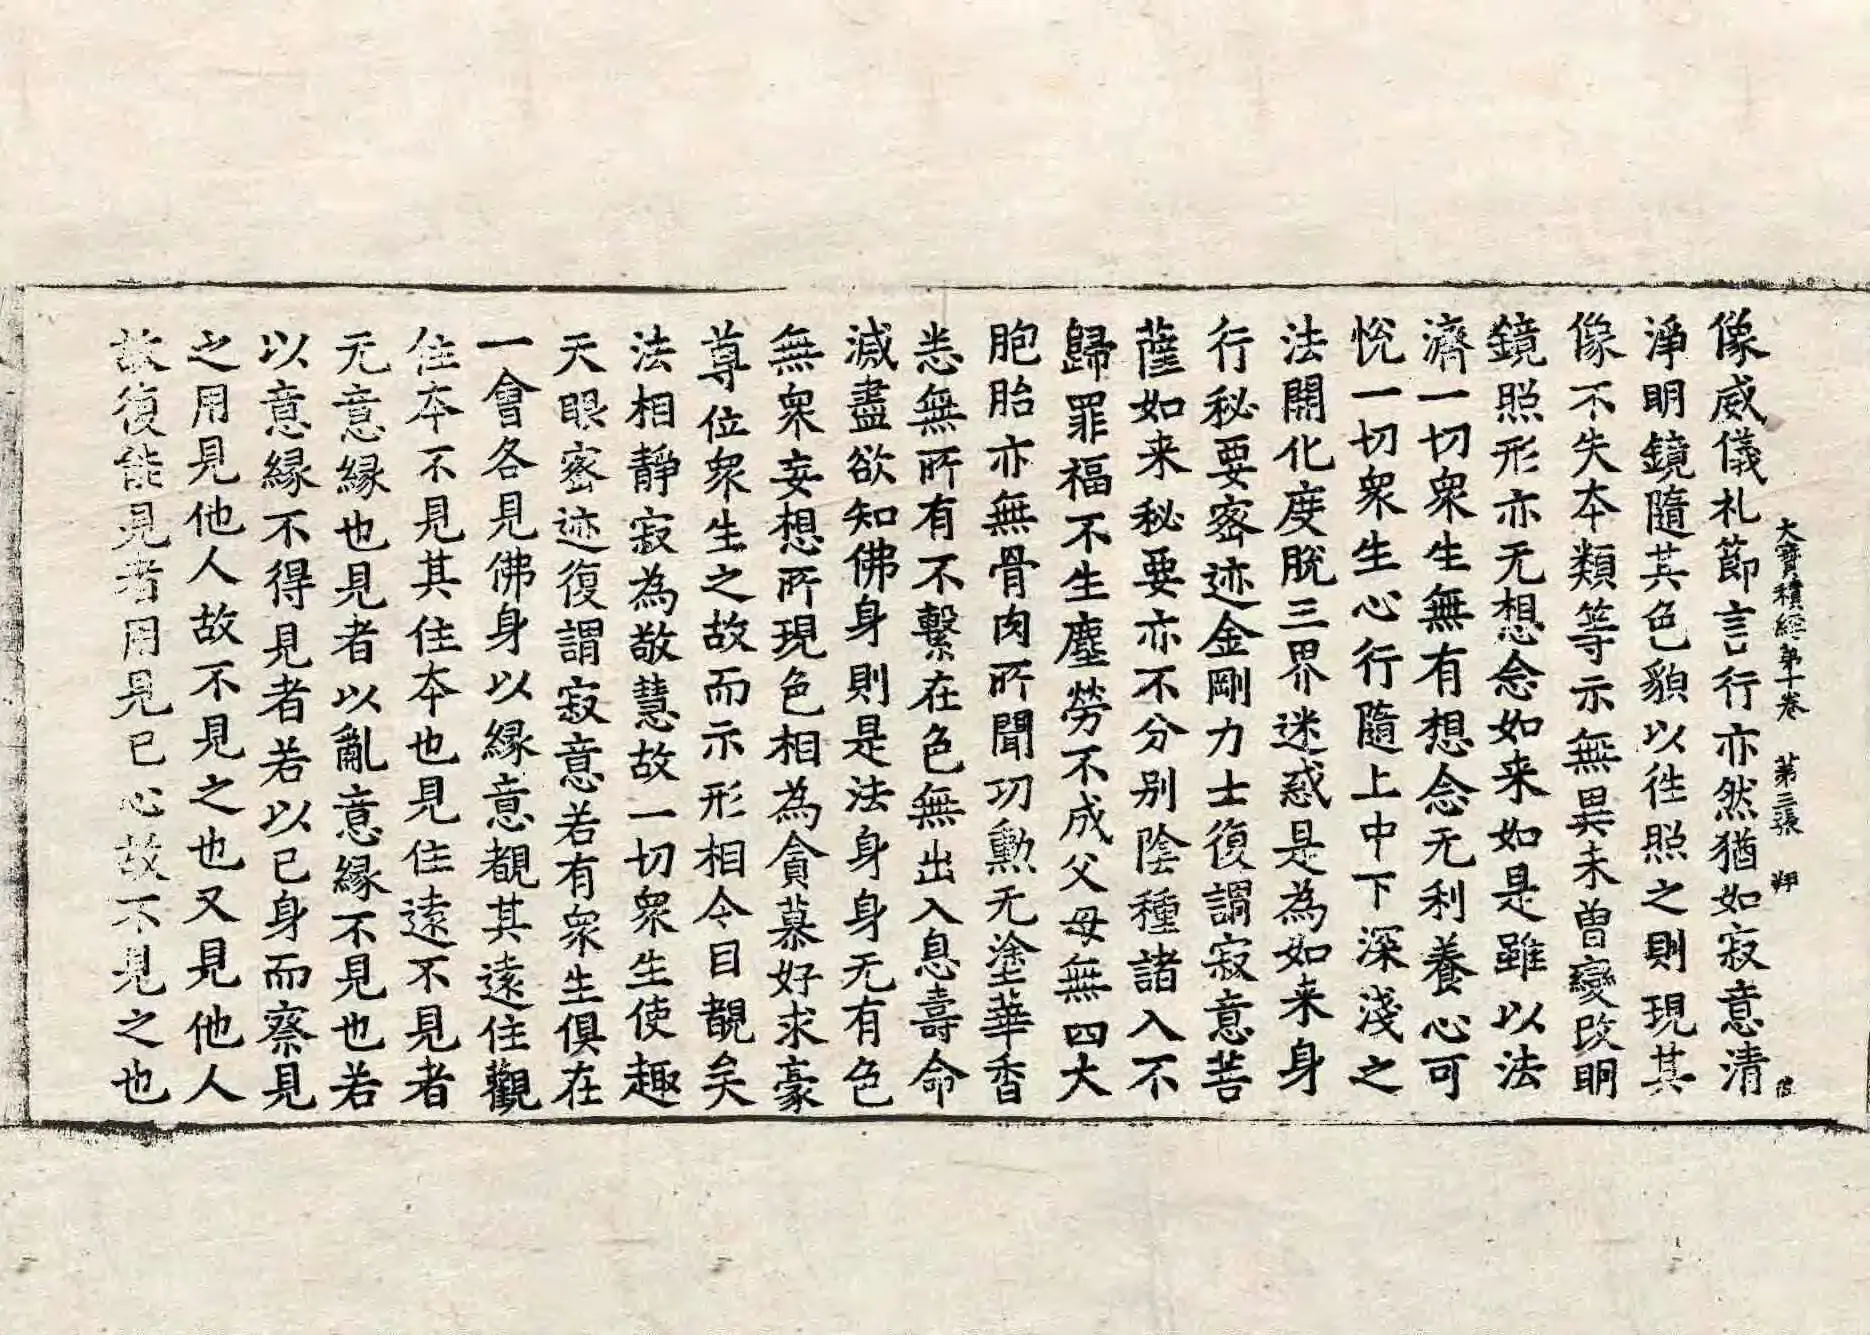 大寶積經第十卷 第三張 翔
像威儀礼節言行亦然猶如寂意清
淨明鏡隨其色貌以徃照之則現其
像不失夲類等示無異未曾變改明
鏡照形亦无想念如来如是雖以法
濟一切衆生無有想念无利養心可
悅一切衆生心行隨上中下深淺之
法開化度脫三界迷惑是為如来身
行秘要密迹金剛力士復謂寂意菩
薩如来秘要亦不分別陰種諸入不
歸罪福不生塵勞不成父母無四大
胞胎亦無骨肉所聞功勲无塗華香
悉無所有不繫在色無出入息壽命
滅盡欲知佛身則是法身身无有色
無衆妄想所現色相為貪慕好求豪
尊位衆生之故而示形相令目覩矣
法相靜寂為敬慧故一切衆生使趣
天眼密迹復謂寂意若有衆生俱在
一會各見佛身以緣意覩其遠住觀
住夲不見其住夲也見住遠不見者
无意緣也見者以亂意緣不見也若
以意緣不得見者若以已身而察見
之用見他人故不見之也又見他人
故復能見者用見已心故不見之也